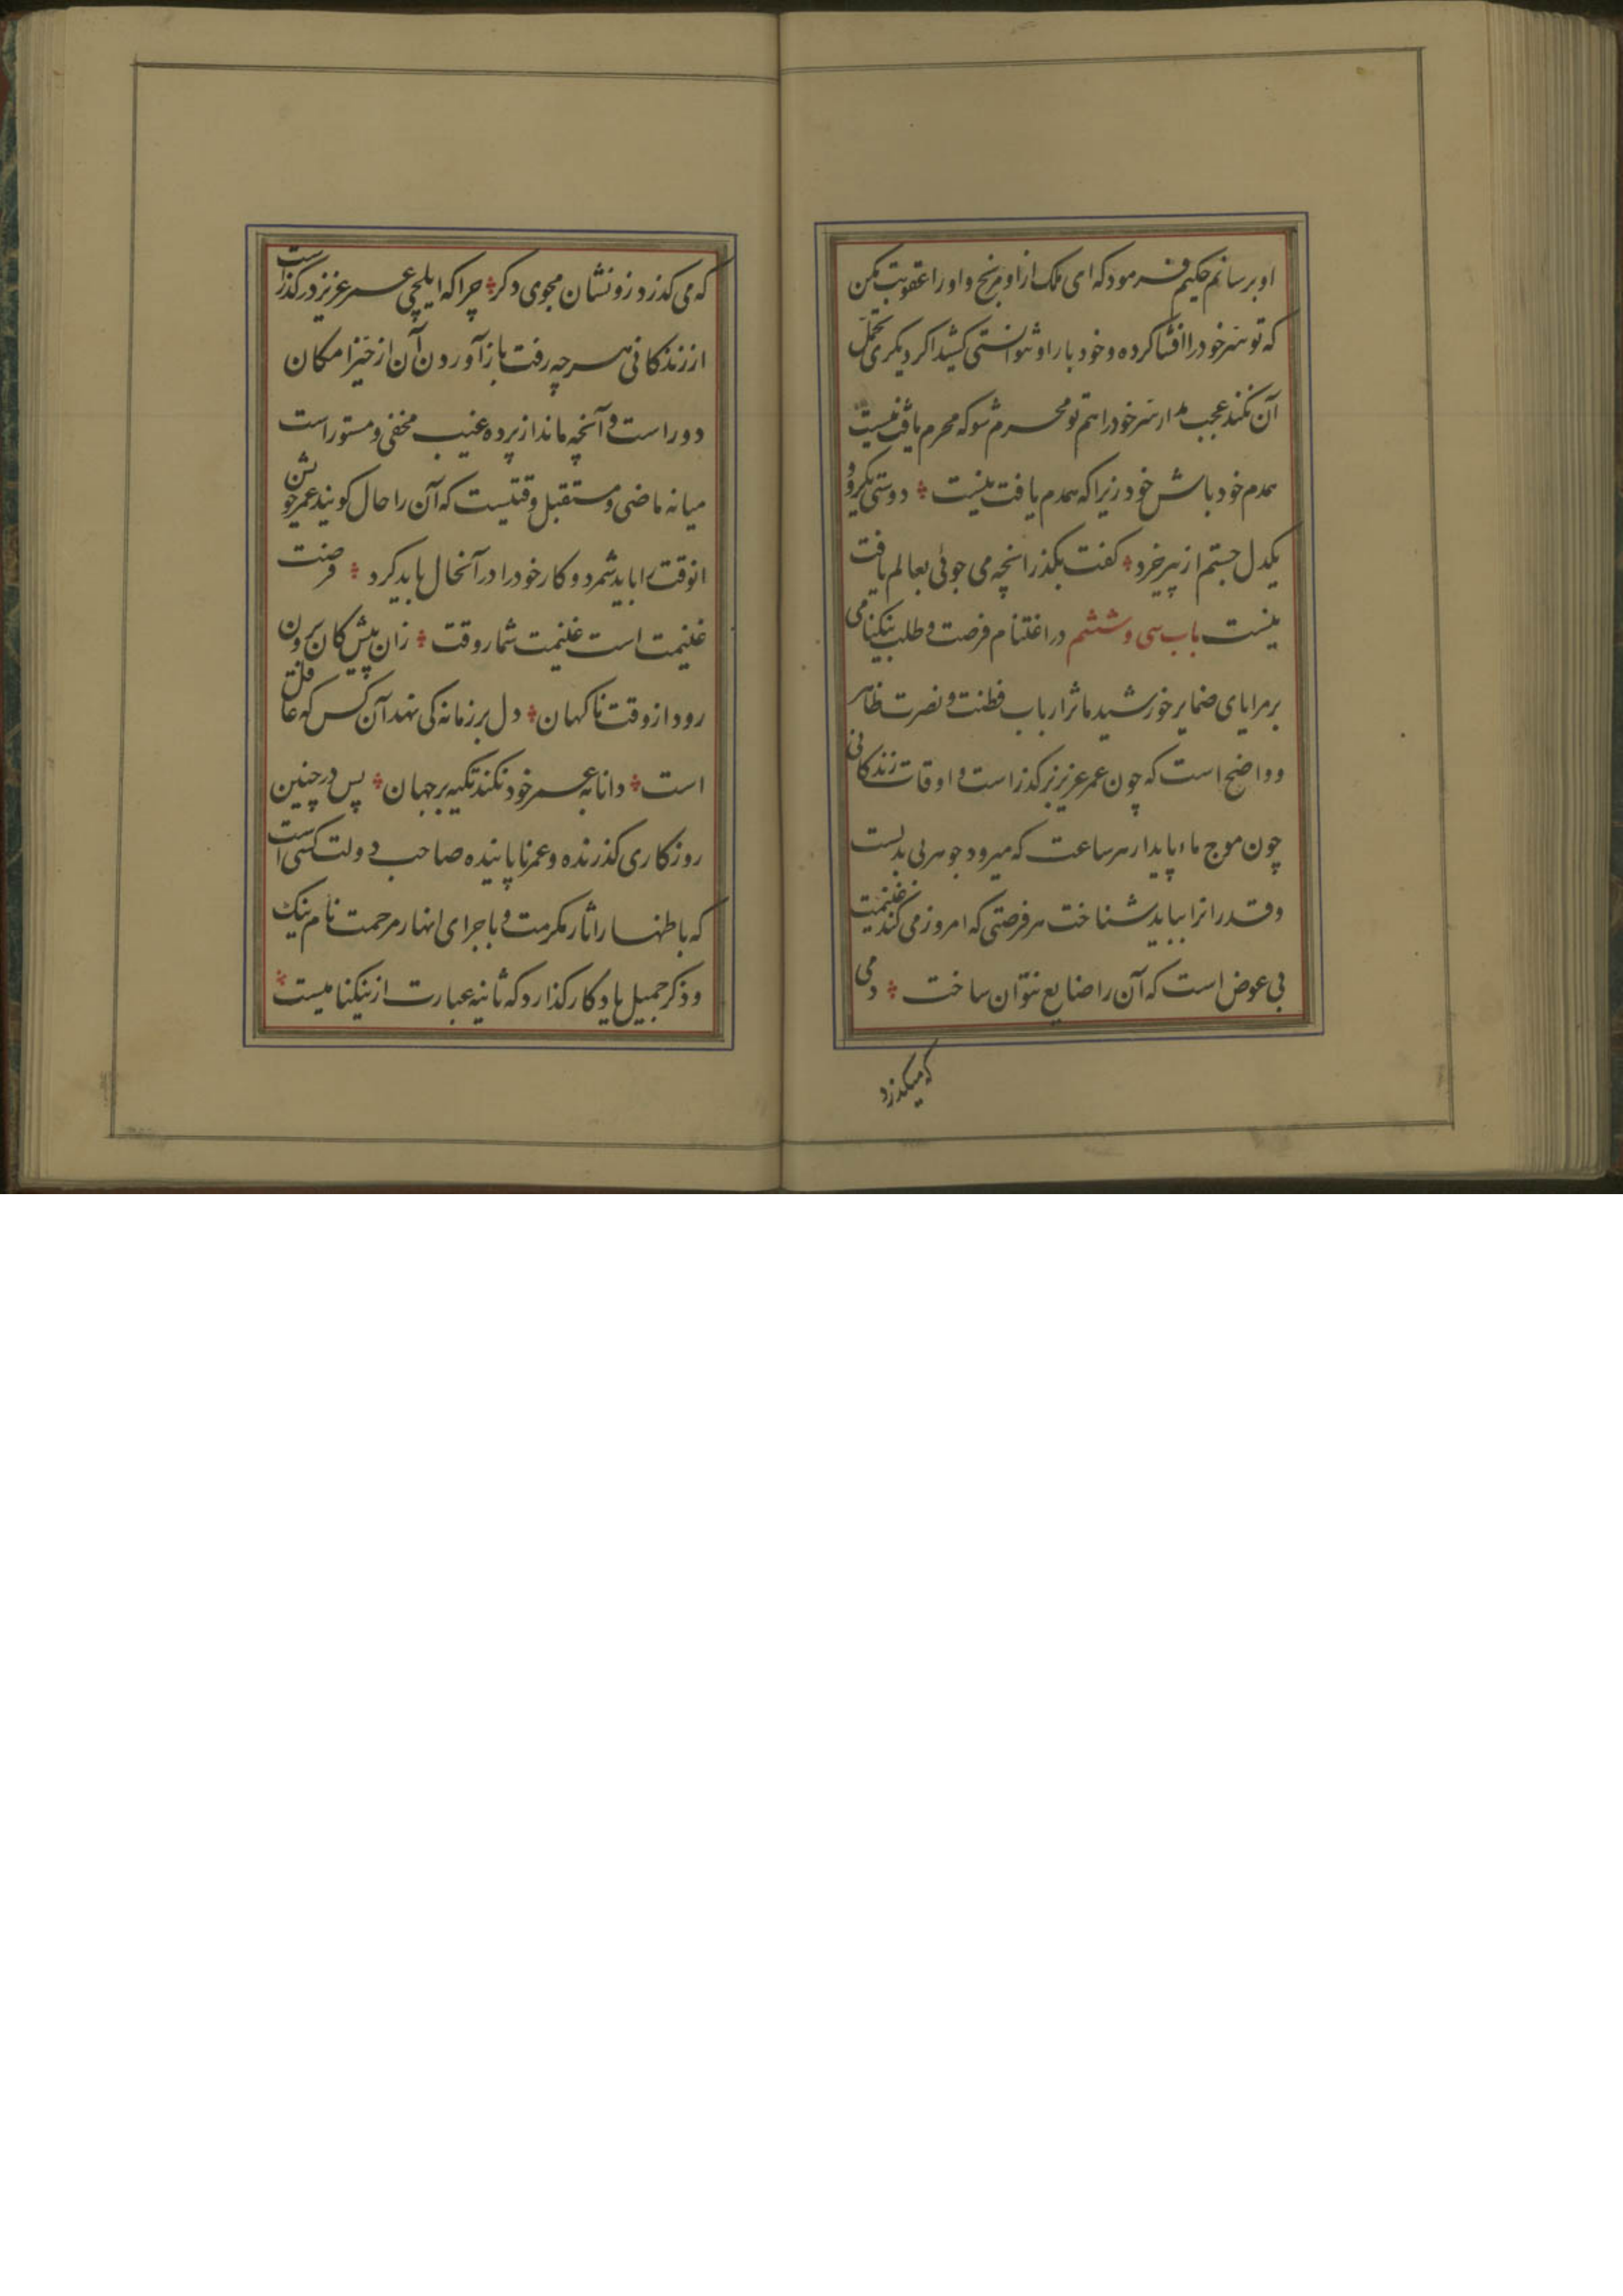 او برسانم حکیم فرمود که ای ملک از او مرنج و او را عقوبت مکن
که تو سر خود را افشا کرده و خود بار او نتوانستی کشید اگر دیگری تحمل
آن نکند عجب مدار سر خود را هم تو محرم شو که محرم یافت نیست
همدم خود باش خود زیرا که همدم یافت نیست ؞ دوستی یکرو و
یکدل جستم از پیر خرد ؞ کفت بکذر انچه می جوئی بعالم یافت
نیست باب سی و ششم در اغتنام فرصت و طلب نیکنامی
بر مرایای ضمایر خورشید ماثر ارباب فطنت و نصرت ظاهر
و واضح است که چون عمر عزیز بر کذر است و اوقات زندکانی
چون موج ماء پایدار هر ساعت که میرود جوهر بی بدلست
و قدر انرا بباید شناخت هر فرصتی که امروز می کند غنیمت
بی عوض است که آن را ضایع نتوان ساخت ؞ دمی
که میکذرد
که می کذرد زو نشان مجوی دکر ؞ چرا که ایلچی عمر عزیز در کذر است
از زندکانی هر چه رفت باز آوردن آن از حیز امکان
دور است و آنچه ماند از پرده غیب مخفی و مستور است
میانه ماضی و مستقبل وقتیست که آن را حال کویند عمر خویش
انوقت را باید شمرد و کار خود را در آنحال باید کرد ؞ فرصت
غنیمت است غنیمت شمار وقت ؞ زان پیش کان برون
رود از وقت ناکهان ؞ دل بر زمانه کی نهد آن کس که عاقل
است ؞ دانا به عمر خود نکند تکیه بر جهان ؞ پس در چنین
روزکاری کذرنده و عمر ناپاینده صاحب دولت کسی است
که باظهار اثار مکرمت و باجرای انهار مرحمت نام نیک
و ذکر جمیل یادکار کذارد که ثانیه عبارت از نیکنامیست ؞